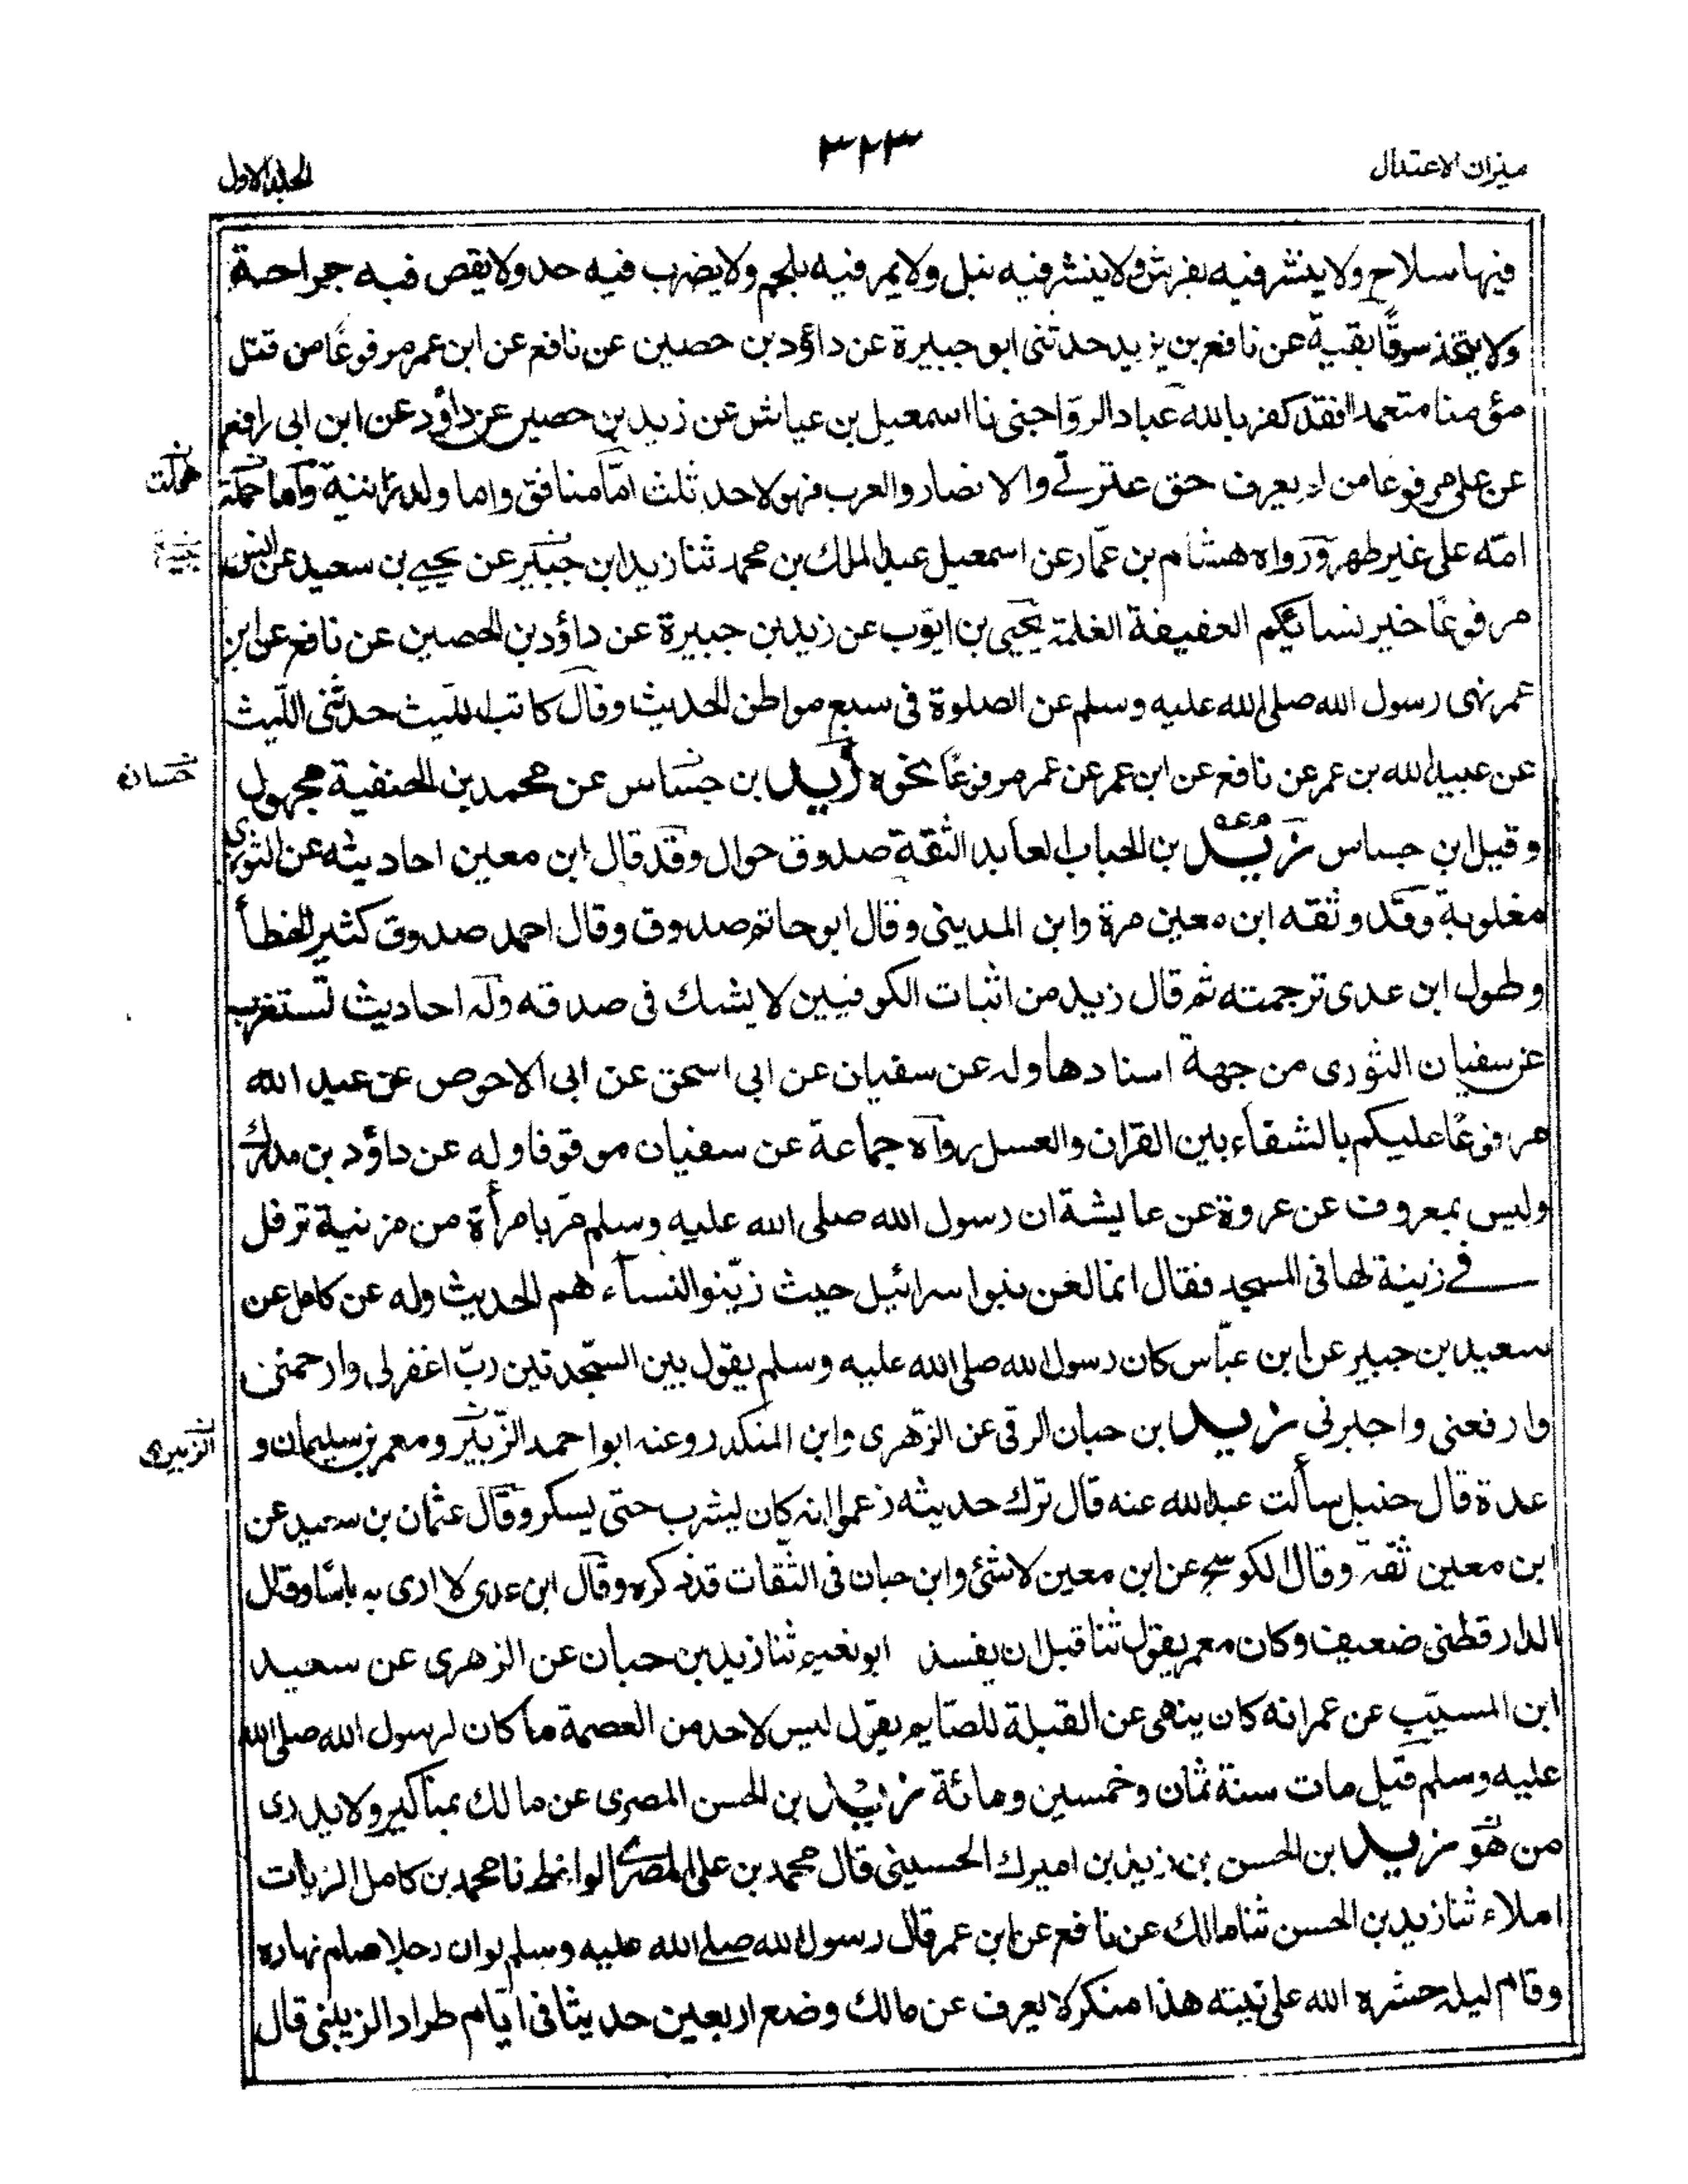 ميزان الاعتدال
٣٢٣
المجلد الاول
فيها سلاح ولا ينشر فيه بفرش ولا ينشر فيه بنبل ولا يمر فيه بلحم ولا يضرب فيه حد ولا يقص فيه جراحة
ولا يتخذ سوقًا بقية عن نافع بن يزيد حدثنى ابو جبيرة عن داؤد بن حصين عن نافع عن ابن عمر مرفوعًا من قتل
مؤمنا متعمدا فقد كفر بالله عباد الرواجنى نا اسمعيل بن عياش عن زيد بن حصير عن داؤد عن ابن ابى رافع
عن على مرفوعا من لم يعرف حق عترتي والانصار والعرب فهو لاحد ثلث امّا منافق واما ولد زانية واما حملة
امّه على غير طهر ورواه هشام بن عمّار عن اسمعيل عبد الملك بن محمد ثنا زيد ابن جبير عن يحيى بن سعيد عن انس
مرفوعًا خير نسائكم العفيفة الغلمة يحيى بن ايوب عن زيد بن جبيرة عن داؤد بن الحصين عن نافع عن ابن
عمر نهى رسول الله صلى الله عليه وسلم عن الصلوة فى سبع مواطن الحديث وقال كاتب الليث حدثنى الليث
عن عبيد الله بن عمر عن نافع عن ابن عمر عن عمر مرفوعًا نحوه زيد بن جساس عن محمد بن الحنفية مجهول
وقيل ابن جساس زيد بن الحباب العابد الثقة صدوق جوال وقد قال ابن معين احاديثه عن الثورى
مغلوبة وقد وثقه ابن معين مرة وابن المدينى وقال ابو حاتم صدوق وقال احمد صدوق كثير الخطأ
وطول ابن عدى ترجمته ثم قال زيد من اثبات الكوفيين لا يشك فى صدقه وله احاديث تستغرب
عن سفيان الثورى من جهة اسنادها وله عن سفيان عن ابى اسحق عن ابى الاحوص عن عبد الله
مرفوعًا عليكم بالشفاء بين القران والعسل رواه جماعة عن سفيان موقوفا وله عن داؤد بن مدرك
وليس بمعروف عن عروة عن عايشة ان رسول الله صلى الله عليه وسلم مرّ بامرأة من مزنية ترفل
في زينة لها فى المسجد فقال انما لعن بنوا سرائيل حيث زيّنوا النساء هم الحديث وله عن كامل عن
سعيد بن جبير عن ابن عبّاس كان رسول الله صلى الله عليه وسلم يقول بين السّجدتين ربّ اغفر لى وارحمنى
وارفعنى واجبرنى زيد ابن حبان الرقى عن الزهرى وابن المنكدر وعنه ابو احمد الزبير ومعمر بن سليمان و
عدة قال حنبل سألت عبد الله عنه قال ترك حديثه زعموا انه كان يشرب حتى يسكر وقال عثمان بن سعيد عن
ابن معين ثقة وقال الكوسج عن ابن معين لا شئ وابن حبان فى الثقات قد ذكره وقال ابن عدى لا ارى به باسًا وقال
الدارقطنى ضعيف وكان معمر يقول ثنا قبل ان يفسد ابو نعيم ثنا زيد بن حبان عن الزهرى عن سعيد
ابن المسيّب عن عمر انه كان ينهى عن القبلة للصّايم يقول ليس لاحد من العصمة ما كان لرسول الله صلى الله
عليه وسلم قيل مات سنة ثمان وخمسين ومائة زيد بن الحسن المصرى عن مالك بمناكير ولا يدرى
من هو زيد ابن الحسن بن زيد بن اميرك الحسينى قال محمد بن على المصرى الواعظ نا محمد بن كامل الزيات
املاء ثنا زيد بن الحسن ثنا مالك عن نافع عن ابن عمر قال رسول الله صلى الله عليه وسلم لو ان رجلا صام نهاره
وقام ليله حشره الله على نيته هذا منكر لا يعرف عن مالك وضع اربعين حديثا فى ايّام طراد الزينبى قال
حملت
حسان
الزبيرى